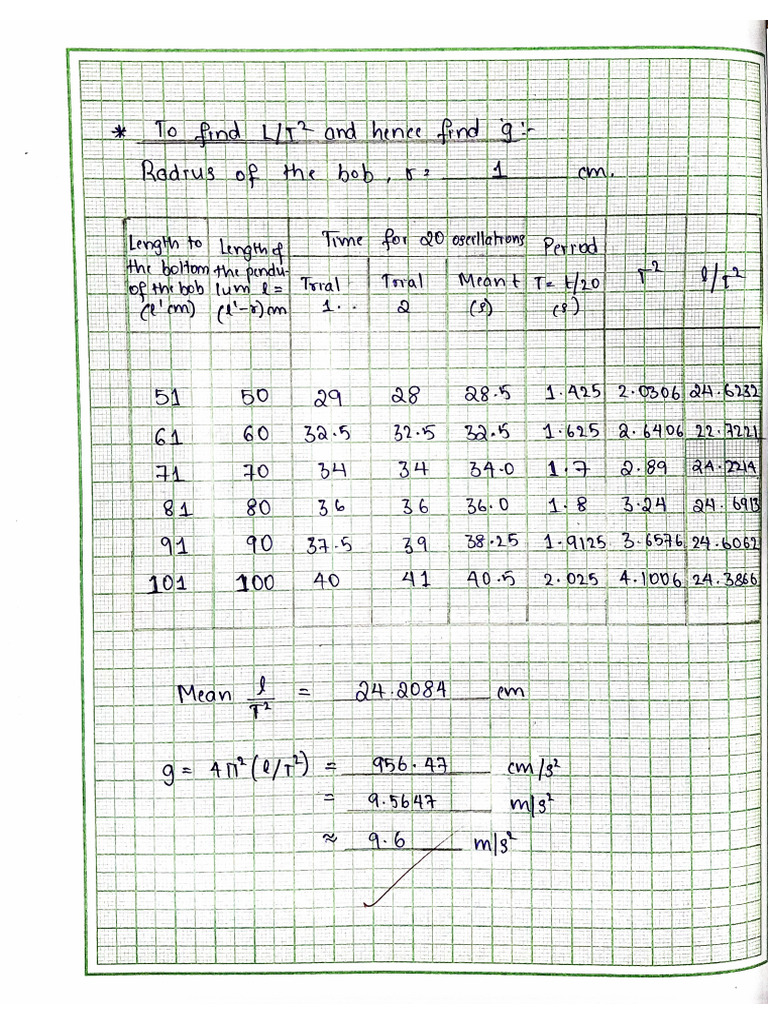 * To find L/T² and hence find 'g' :-
Radius of the bob, r = 1 cm.
Length to the bottom of the bob (l' cm) Length of the pendulum l = (l'-r) cm Time for 20 oscillations Period T = t/20 (s) T² l/T²
Trial 1.. Trial 2 Mean t (s)
51 50 29 28 28.5 1.425 2.0306 24.6232
61 60 32.5 32.5 32.5 1.625 2.6406 22.7221
71 70 34 34 34.0 1.7 2.89 24.2214
81 80 36 36 36.0 1.8 3.24 24.6913
91 90 37.5 39 38.25 1.9125 3.6576 24.6062
101 100 40 41 40.5 2.025 4.1006 24.3866
Mean l/T² = 24.2084 cm
g = 4π²(l/T²) = 956.47 cm/s²
= 9.5647 m/s²
≈ 9.6 m/s²